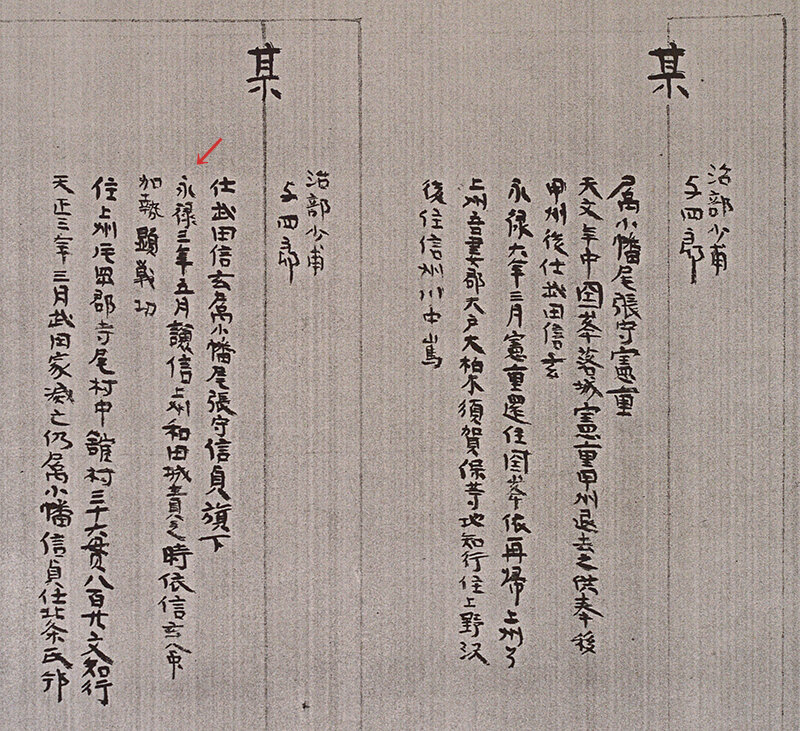 某
治部少甫
与四郎
属小幡尾張守憲重
天文年中国峯落城憲重甲州退去之供奉後
甲州後仕武田信玄
永禄六年三月憲重還住国峯依再帰上州
上州吾妻郡大戸大柏木須賀保等地知行住上野沢
後住信州川中嶌
某
治部少甫
与四郎
仕武田信玄属小幡尾張守信貞旗下
永禄三年五月謙信上州和田城責之時依信玄命
加 顕戦功
住上州片岡郡寺尾村中 村三十六貫八百廿文知行
天正三年三月武田家滅亡仍属小幡信貞仕北条氏邦